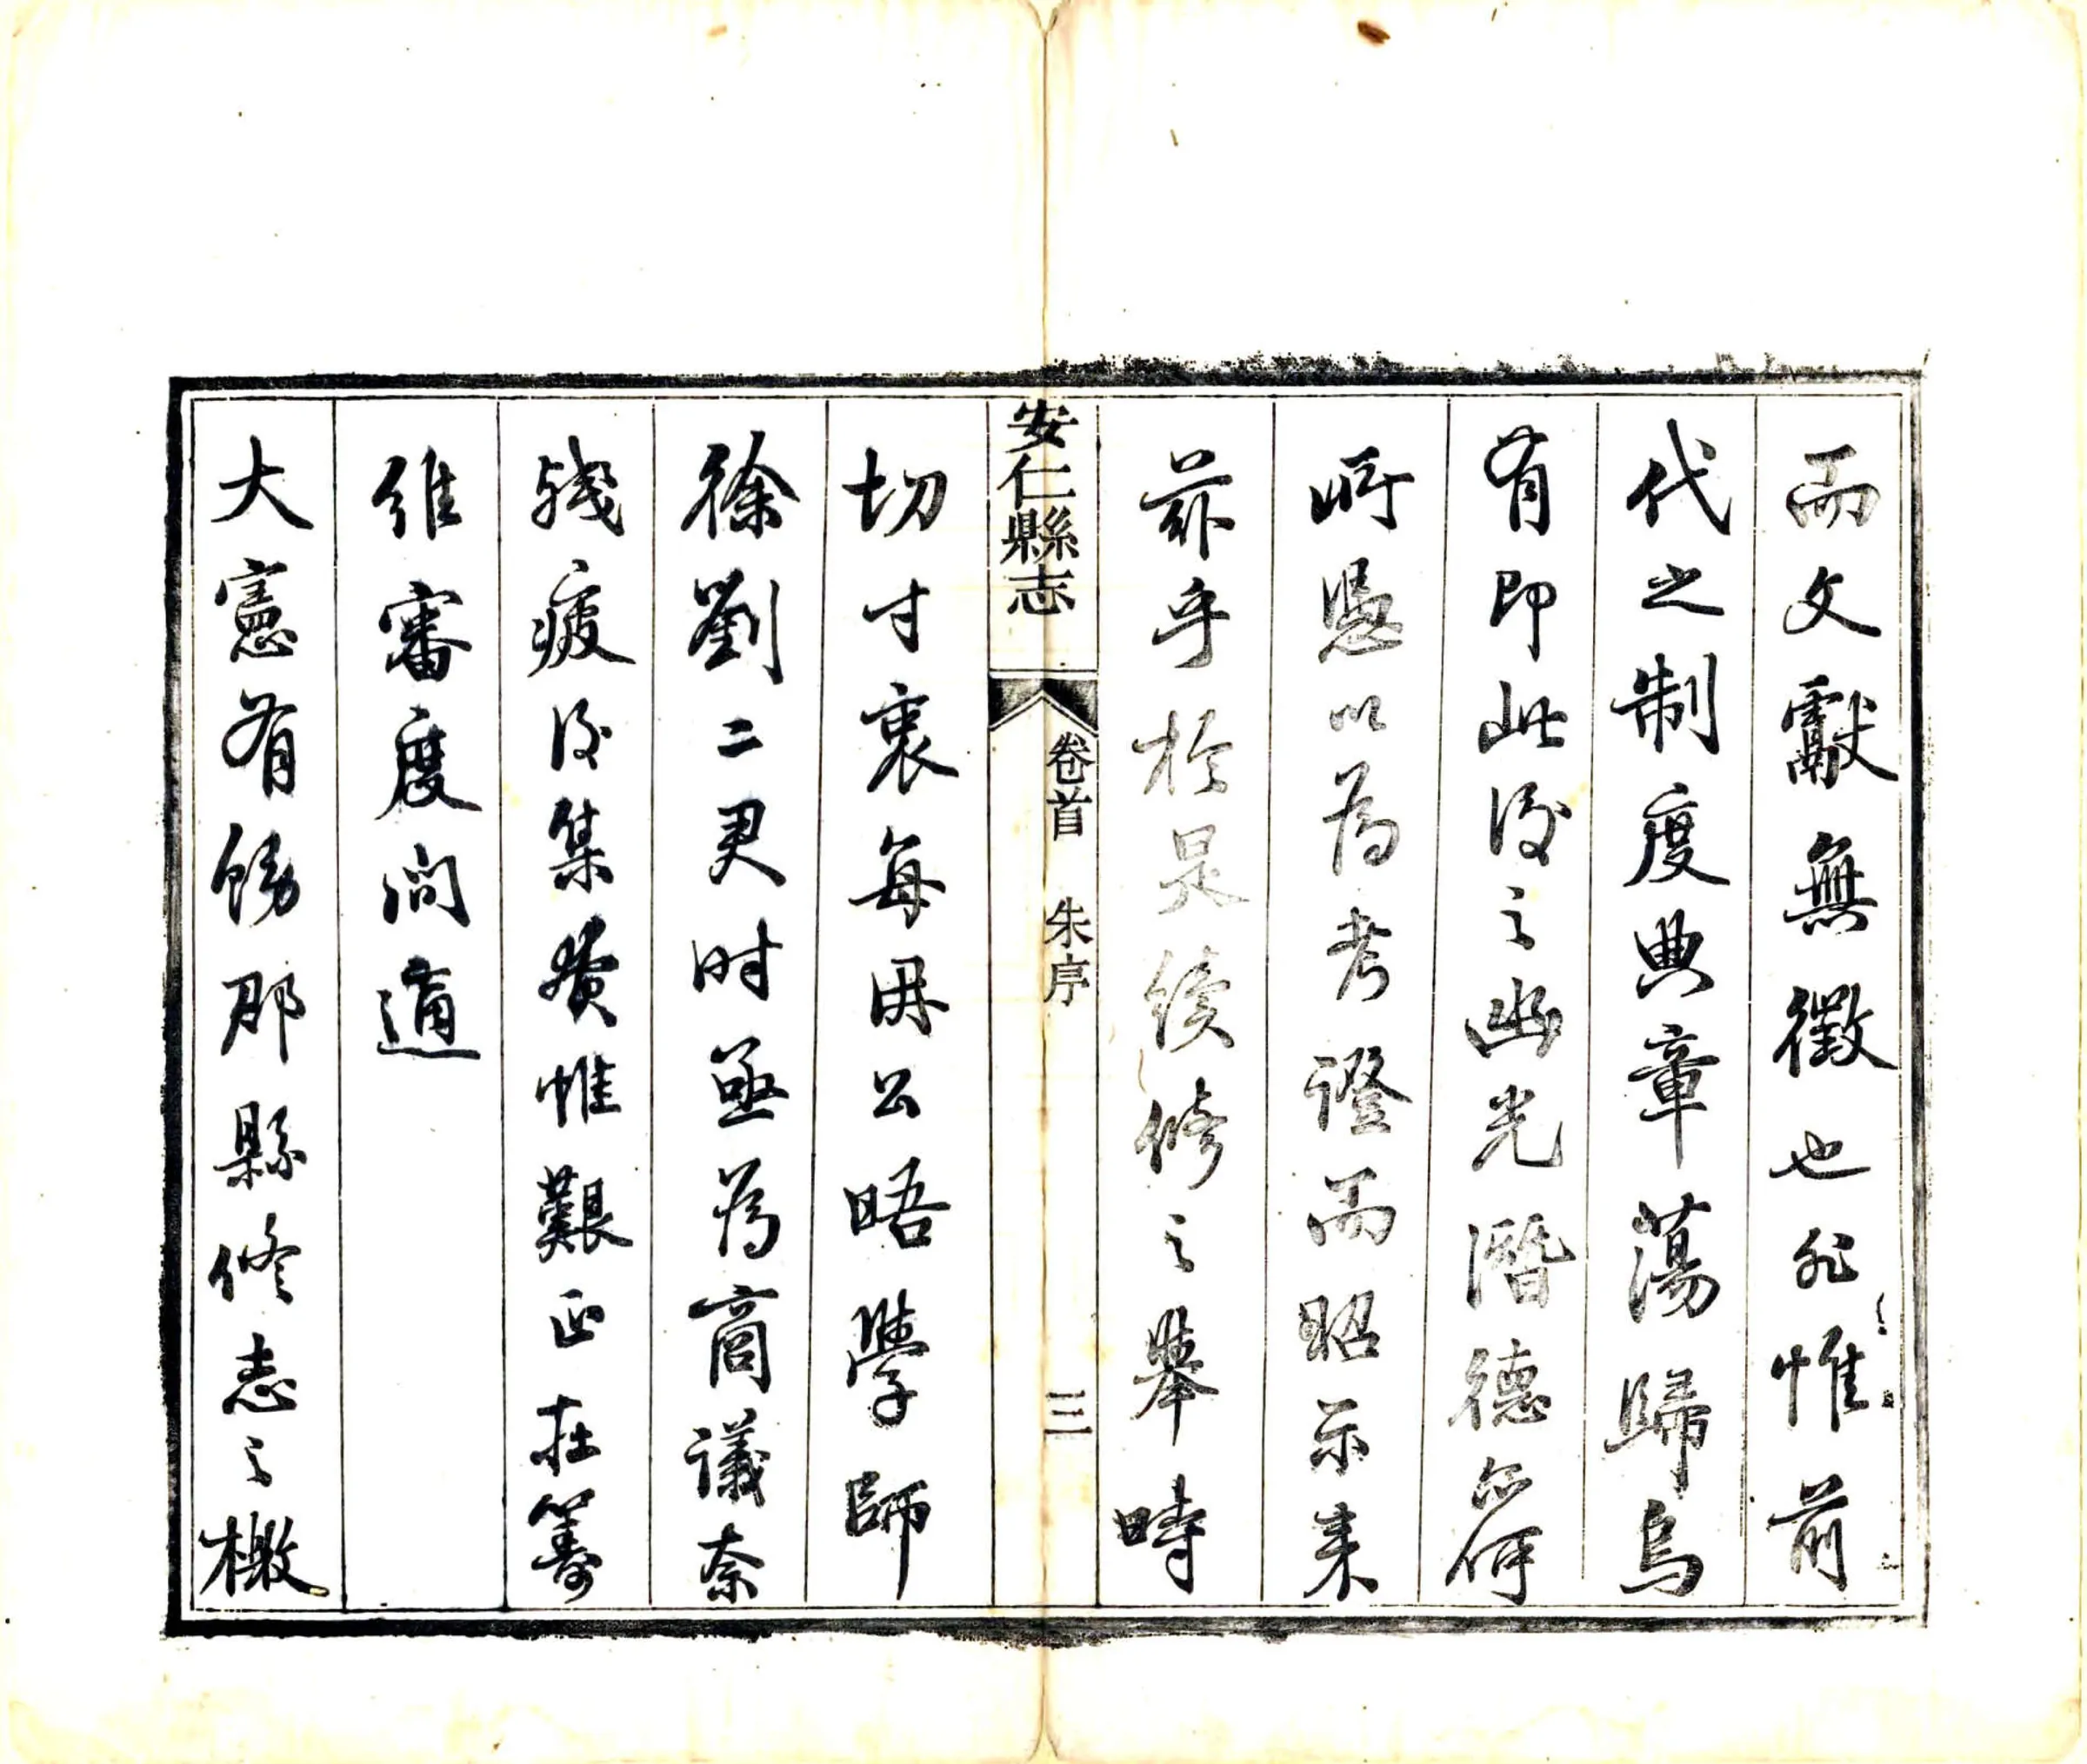 而文獻無徵也非惟前
代之制度典章蕩歸烏
有即此後之幽光潛德亦何
所憑以為考證而昭示來
茲乎於是續修之舉時
安仁縣志
卷首 朱序 三
切寸衷每毋公晤學師
徐劉二君時亟為商議奈
殘疲後集費惟艱正在籌
維審度間適
大憲有飭郡縣修志之檄